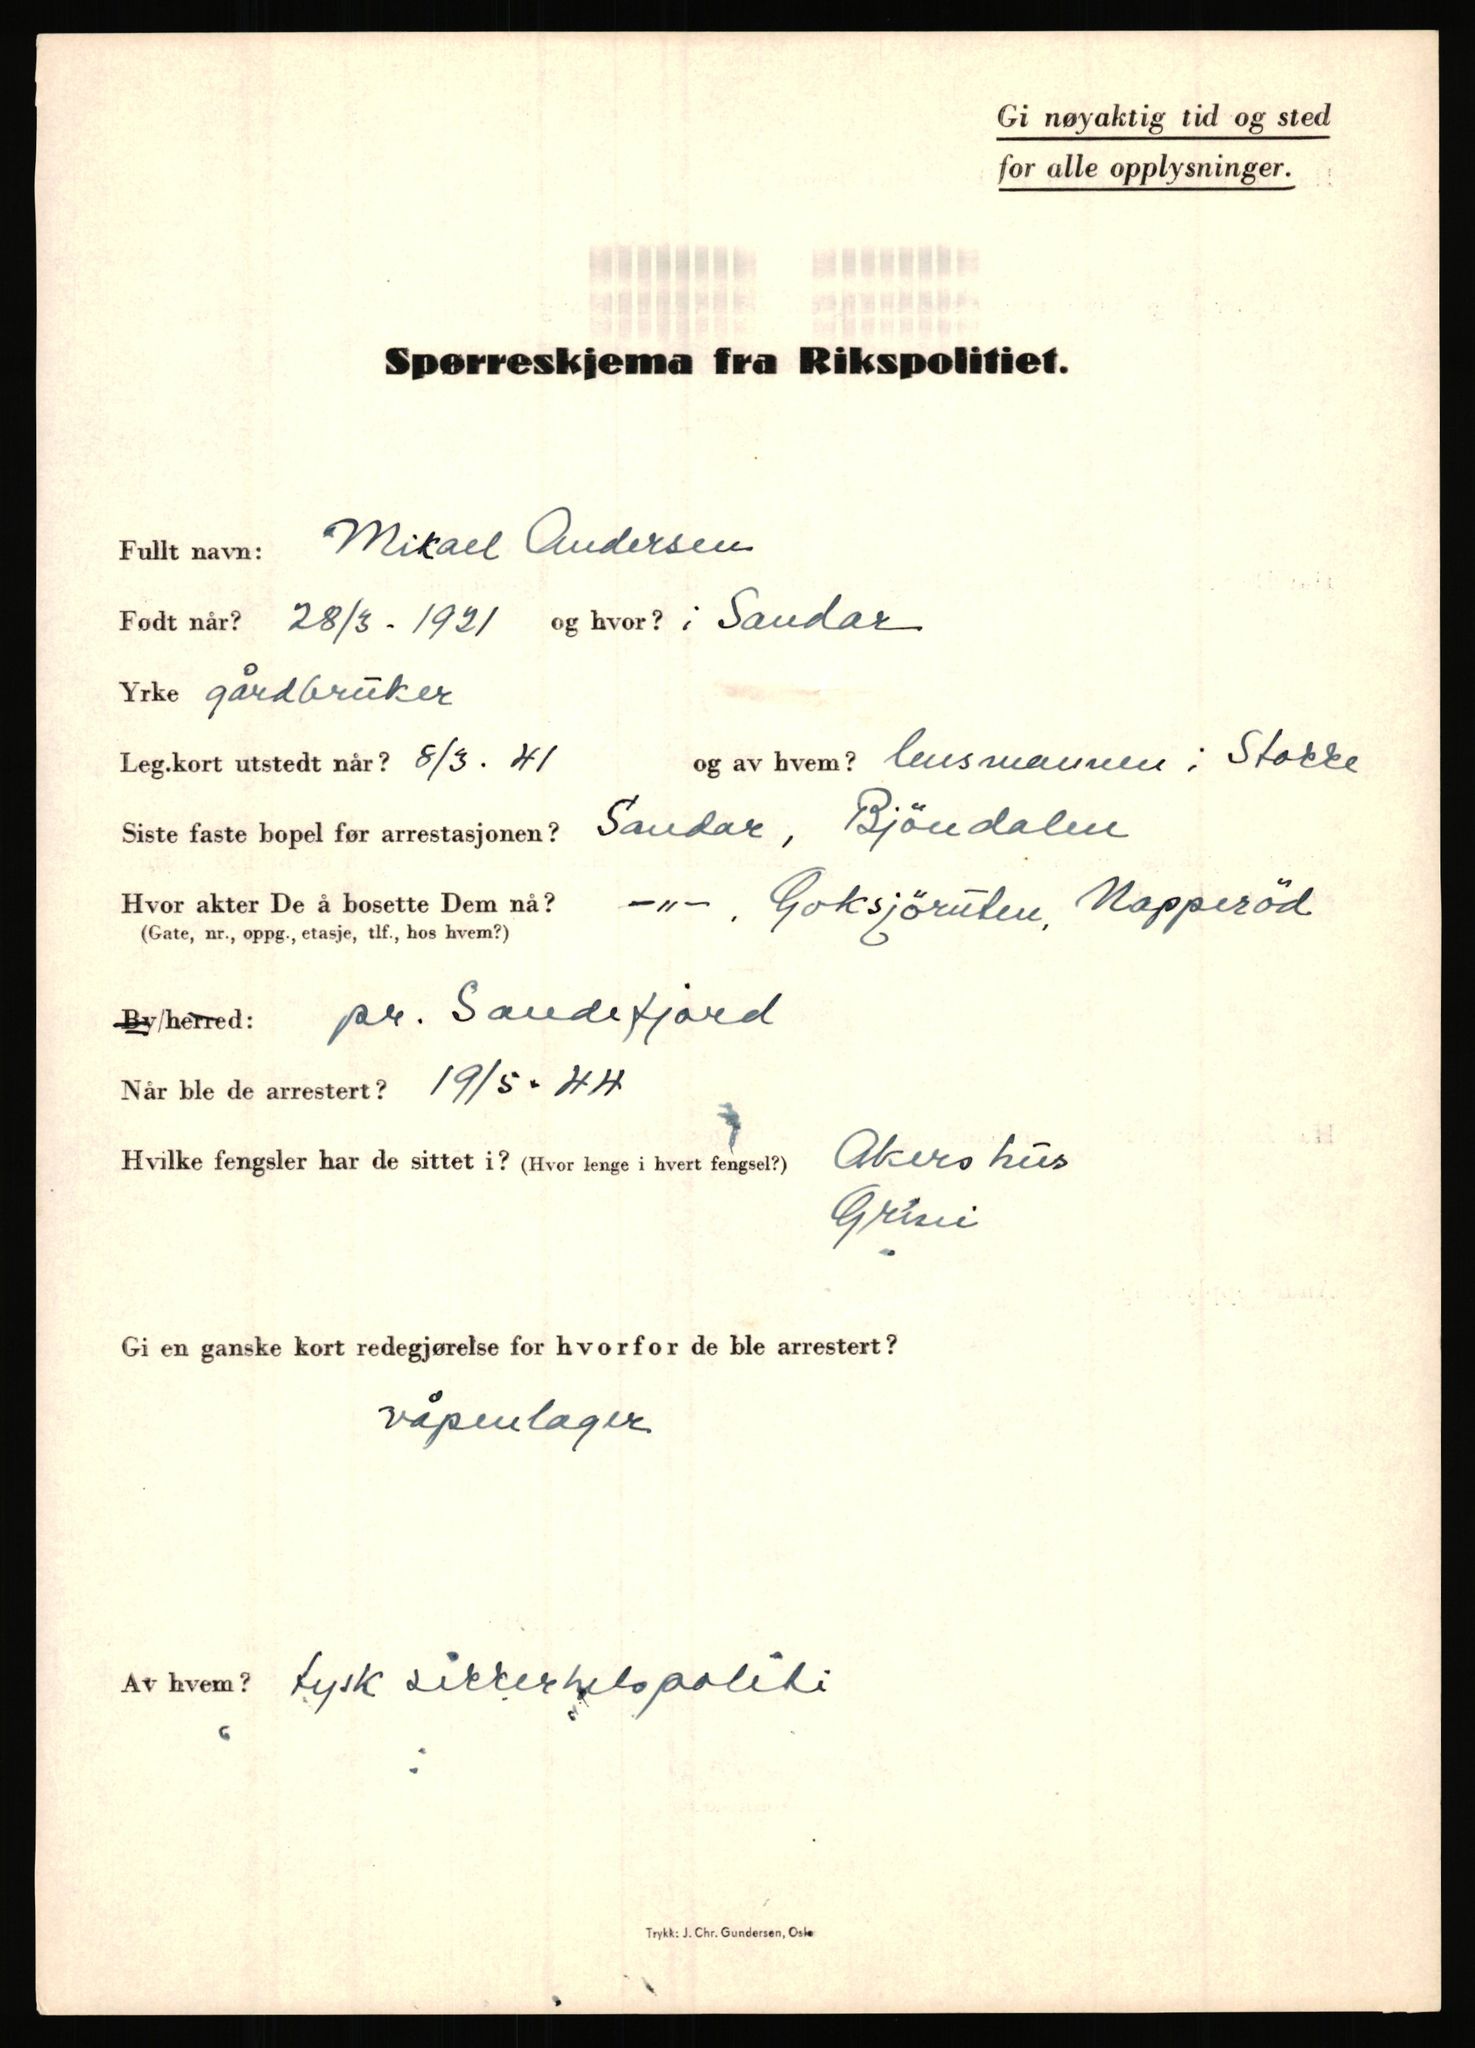 Gi nøyaktig tid og sted
for alle opplysninger.
Spørreskjema fra Rikspolitiet.
Fullt navn: Mikael Andersen
Født når? 28/3 - 1921 og hvor? i Sandar
Yrke gårdbruker
Leg.kort utstedt når? 8/3 - 41 og av hvem? lensmannen i Stokke
Siste faste bopel før arrestasjonen? Sandar, Bjöndalen
Hvor akter De å bosette Dem nå? —"—, Goksjöruten, Napperöd
(Gate, nr., oppg., etasje, tlf., hos hvem?)
By/herred: pr. Sandefjord
Når ble de arrestert? 19/5 - 44
Hvilke fengsler har de sittet i? (Hvor lenge i hvert fengsel?) Akershus
Grini
Gi en ganske kort redegjørelse for hvorfor de ble arrestert?
våpenlager
Av hvem? tysk sikkerhetspoliti
Trykk: J. Chr. Gundersen, Oslo